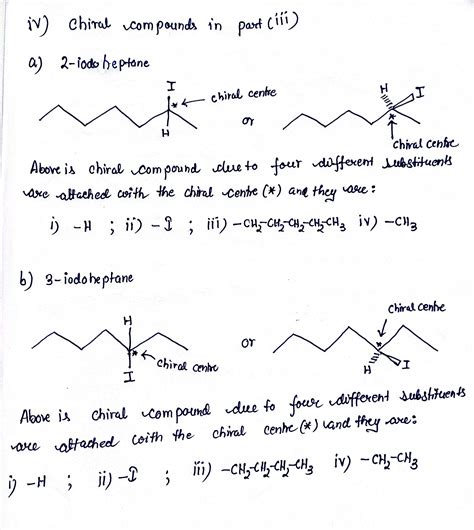 iv) Chiral compounds in part (iii)
a) 2-iodoheptane
I
* chiral centre
H
or
H
I
*
Chiral centre
Above is chiral compound due to four different substituents
are attached with the chiral centre (*) and they are:
i) -H ; ii) -I ; iii) -CH2-CH2-CH2-CH2-CH3 iv) -CH3
b) 3-iodoheptane
H
*
I
chiral centre
or
Chiral centre
*
H
I
Above is chiral compound due to four different substituents
are attached with the chiral centre (*) and they are:
i) -H ; ii) -I ; iii) -CH2-CH2-CH2-CH3 iv) -CH2-CH3